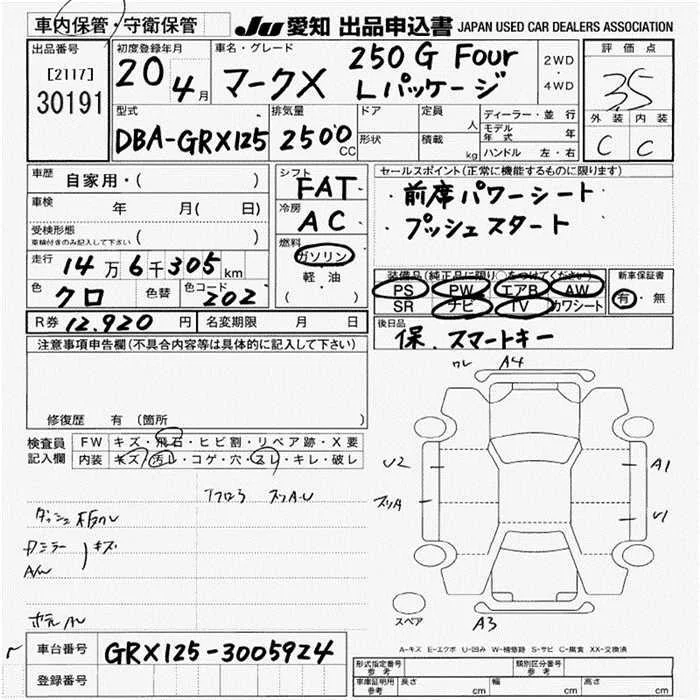 車内保管・守衛保管
JU 愛知 出品申込書 JAPAN USED CAR DEALERS ASSOCIATION
出品番号
[2117]
30191
初度登録年月
20 4月
車名・グレード
マークX 250G Four
Lパッケージ
2WD
・
4WD
評価点
3.5
外装 内装
C C
型式
DBA-GRX125
排気量
2500 CC
ドア
形状
定員 人
積載 kg
ディーラー・並行
モデル年式 年
ハンドル 左・右
車歴 自家用・( )
車検 年 月( 日)
受検形態
車検付きのみ記入して下さい ( )
走行 14万6千305km
色 クロ 色替 色コード 202
R券 12,920円 名変期限 月 日
シフト
FAT
冷房
AC
燃料
ガソリン
・
軽・油
( )
セールスポイント(正常に機能するものに限ります)
・前席パワーシート
・プッシュスタート
装備品(純正品に限り○をつけてください)
PS PW エアB AW
SR ナビ TV カワシート
新車保証書
有・無
後日品
保、スマートキー
注意事項申告欄(不具合内容等は具体的に記入して下さい)
修復歴 有(箇所 )
検査員
記入欄
FW キズ・飛石・ヒビ割・リペア跡・X要
内装 キズ・汚レ・コゲ・穴・スレ・キレ・破レ
A4
U2
A1
スリA
U1
A3
キズ
A/W
スペア
A-キズ E-エクボ U-凹み W-補修跡 S-サビ C-腐食 XX-交換済
車台番号 GRX125-3005924
登録番号
形式指定番号
参考
類別区分番号
参考
車庫証明用
参考
長さ cm 幅 cm 高さ cm